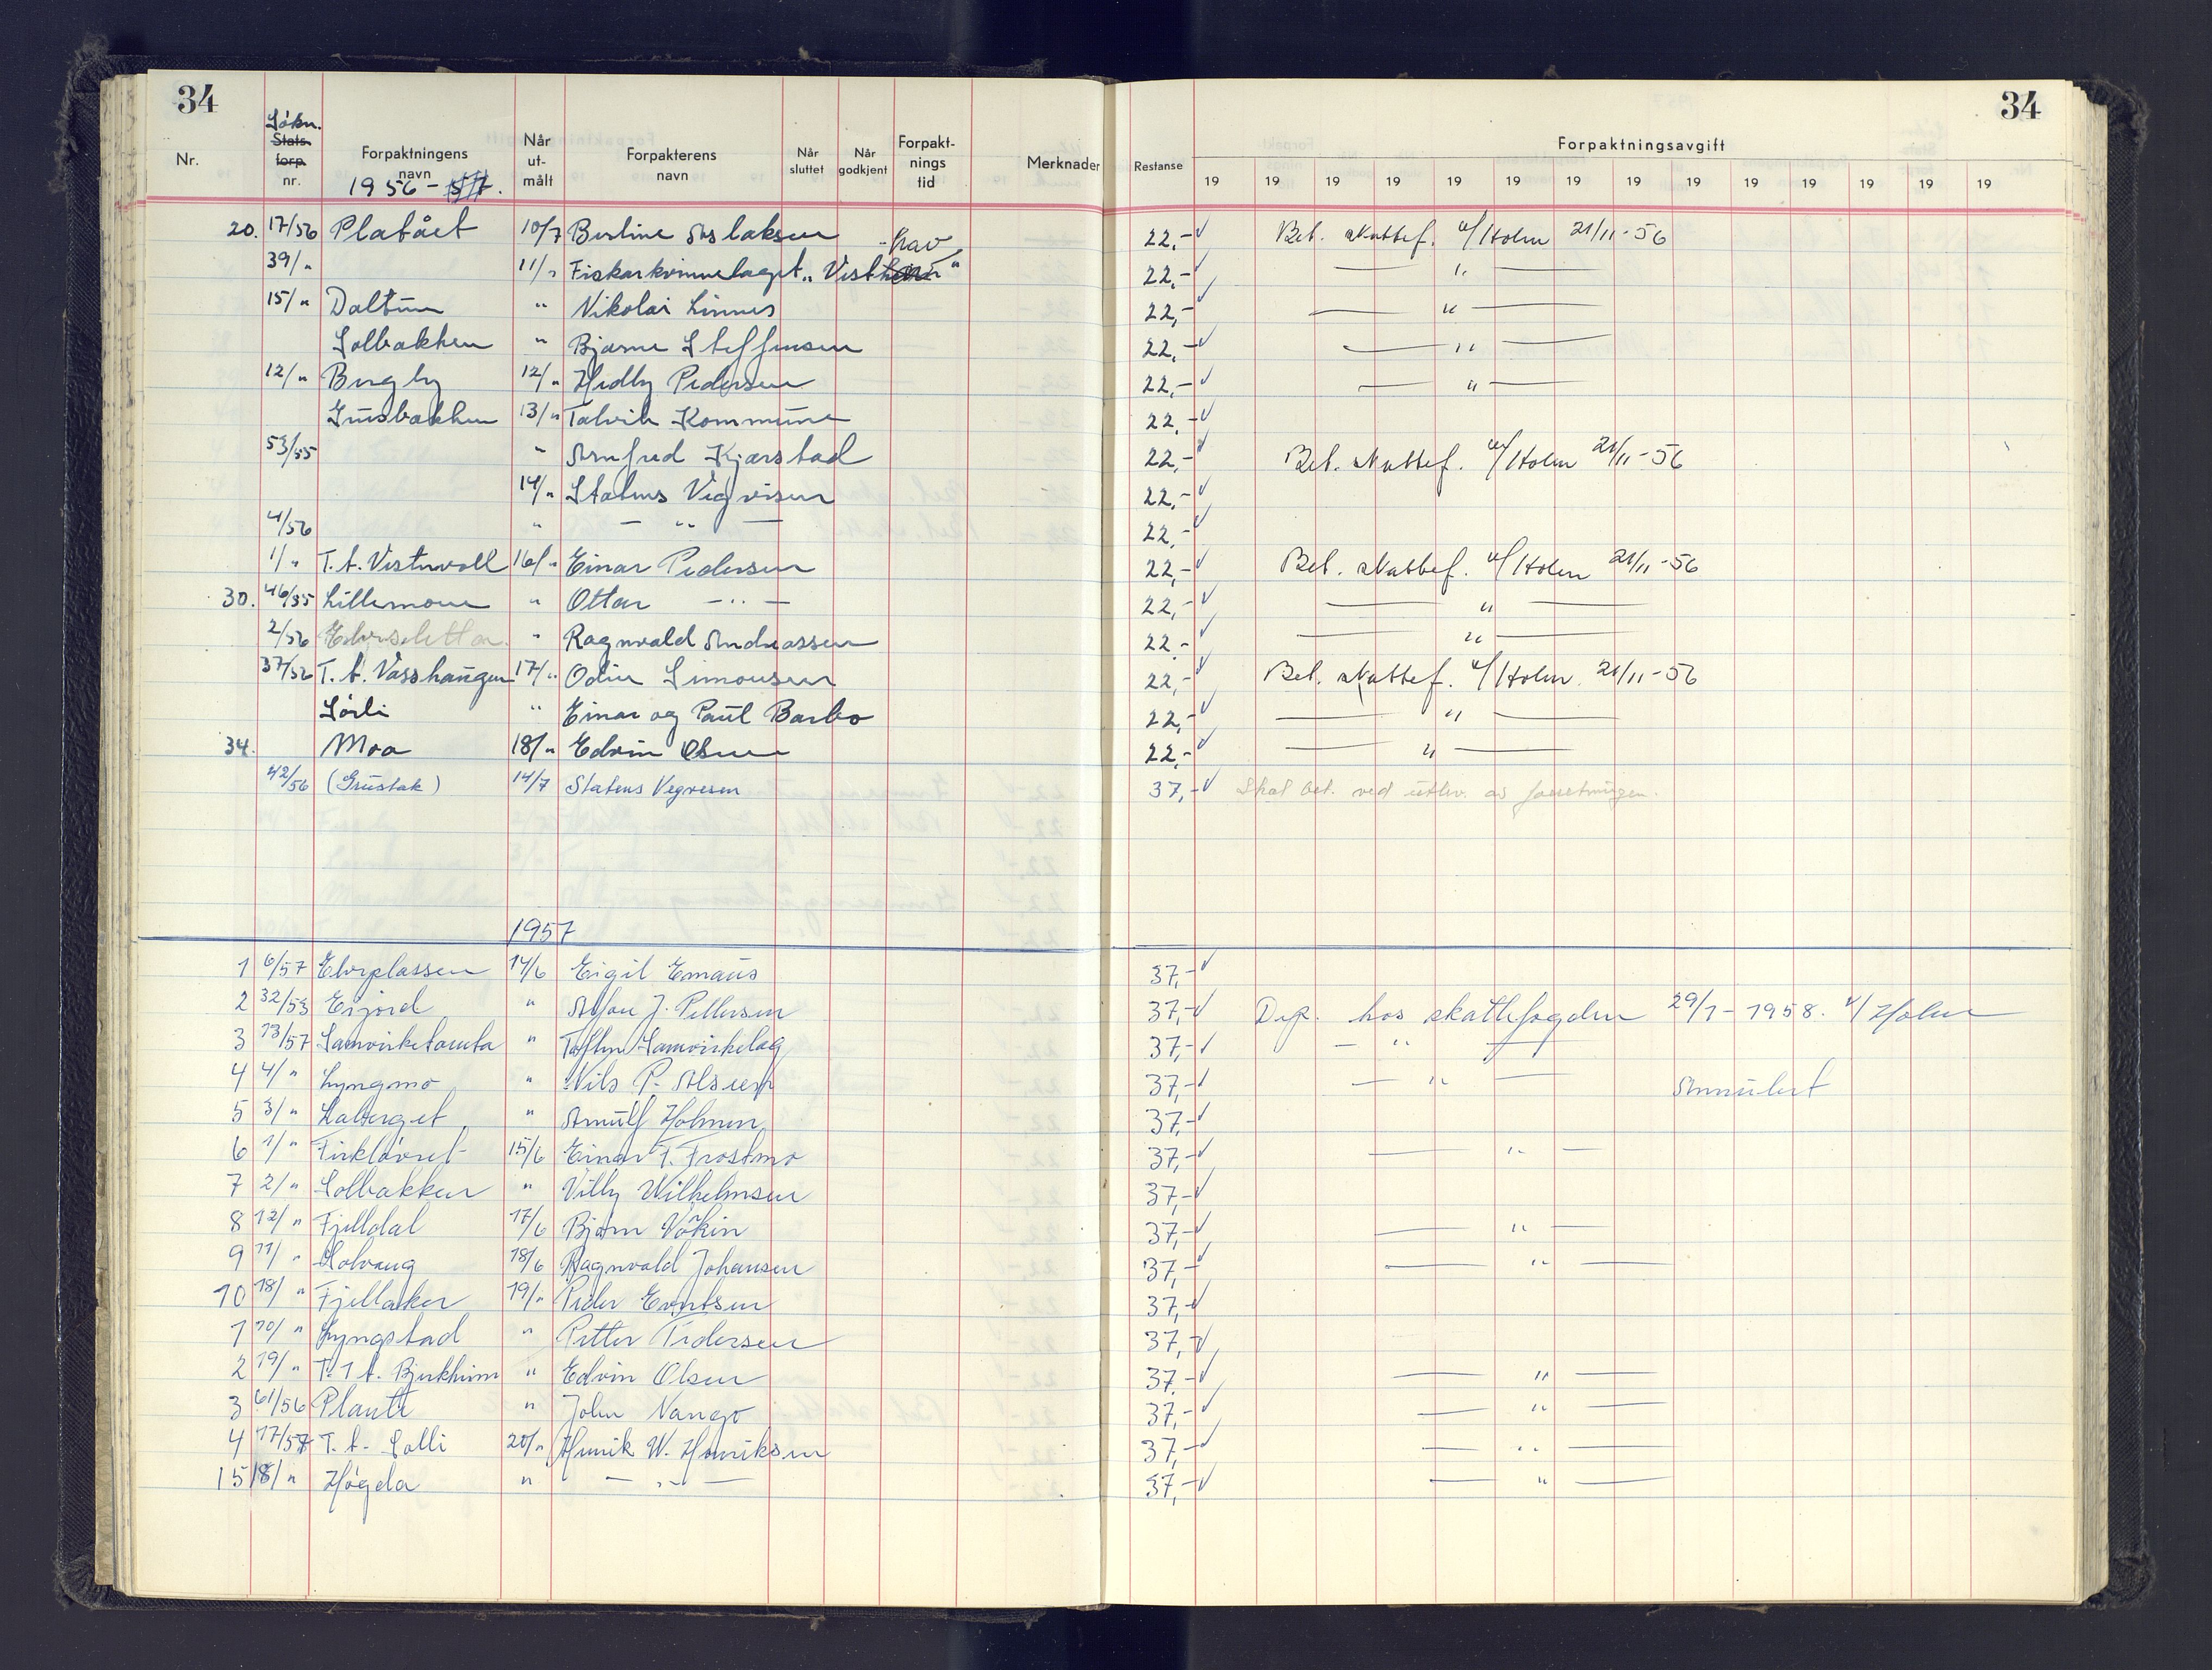 34 34
Søkn.
Nr. Stats. forp. nr. Forpaktningens navn Når ut- målt Forpakterens navn Når sluttet Når godkjent Forpakt- nings tid Merknader Restanse Forpaktningsavgift
1956 - 57.
19 19 19 19 19 19 19 19 19 19 19 19 19 19
20. 17/56 Platået 10/7 Berline Aslaksen 22,- Bet. skattef. v/Holm 21/11-56
39/" 11/" Fiskarkvinnelaget "Vesthav" 22,- — " —
15/" Daltun " Nikolai Linnes 22,- — " —
Solbakken " Bjarne Steffensen 22,- — " —
12/" Bergly 12/" Hedly Pedersen 22,- — " —
Grusbakken 13/" Talvik Kommune 22,-
53/55 " Arnfred Kjærstad 22,- Bet. skattef. v/Holm 21/11-56
14/" Statens Vegvesen 22,-
4/56 " — " — 22,-
1/" T.t. Vestervoll 16/" Einar Pedersen 22,- Bet. skattef. v/Holm 21/11-56
30. 46/55 Lillemoen " Ottar — " — 22,- — " —
2/56 Elvesletta " Ragnvald Andreassen 22,- — " —
37/56 T.t. Vasshaugen 17/" Odin Simonsen 22,- Bet. skattef. v/Holm 21/11-56
Sørli " Einar og Paul Barbo 22,- — " —
34. Moa 18/" Edvin Olsen 22,- — " —
42/56 (Grustak) 14/7 Statens Vegvesen 37,- Skal bet. ved utlev. av forretningen.
1957
1 6/57 Elvplassen 14/6 Eigil Emaus 37,-
2 32/53 Eijord " Alfon J. Pettersen 37,- Dep. hos skattefogden 29/1-1958. v/Holm
3 13/57 Samvirketomta " Samvirkelag 37,- — " —
4 4/" Lyngmo " Nils P. Olsen 37,- — " — Annulert
5 3/" " Arnulf Holmen 37,-
6 1/" Firkløvret 15/6 Einar F. Frostmo 37,- — " —
7 2/" Solbakken " Villy Wilhelmsen 37,-
8 12/" Fjelldal 17/6 Bjørn Vokin 37,- — " —
9 11/" Solvang 18/6 Ragnvald Johansen 37,- — " —
10 18/" Fjellaker 19/" Peder Evertsen 37,-
1 10/" Lyngstad " Petter Pedersen 37,-
2 19/" T.t. Bjerkheim " Edvin Olsen 37,- — " —
3 61/56 " John Nango 37,- — " —
4 17/57 T.t. Solli 20/" Henrik W. Henriksen 37,- — " —
15 18/" Høgda " — " — 37,- — " —